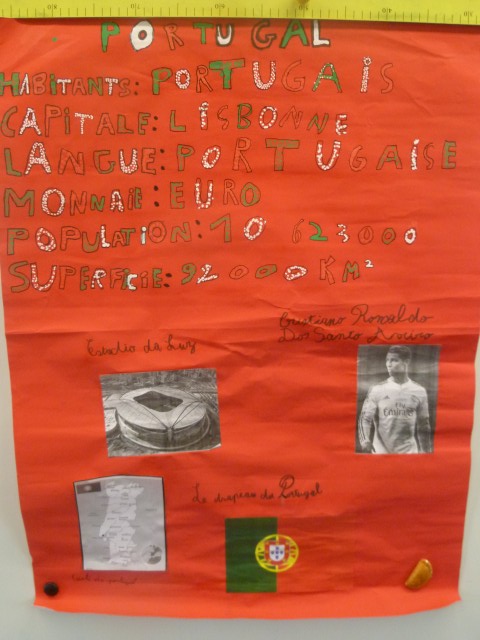 PORTUGAL
HABITANTS: PORTUGAIS
CAPITALE: LISBONNE
LANGUE: PORTUGAISE
MONNAIE: EURO
POPULATION: 10 623000
SUPERFICIE: 92000 KM²
Cristiano Ronaldo
Dos Santo Aveiro
Estadio da Luz
Fly
Emirates
Le drapeau du Portugal